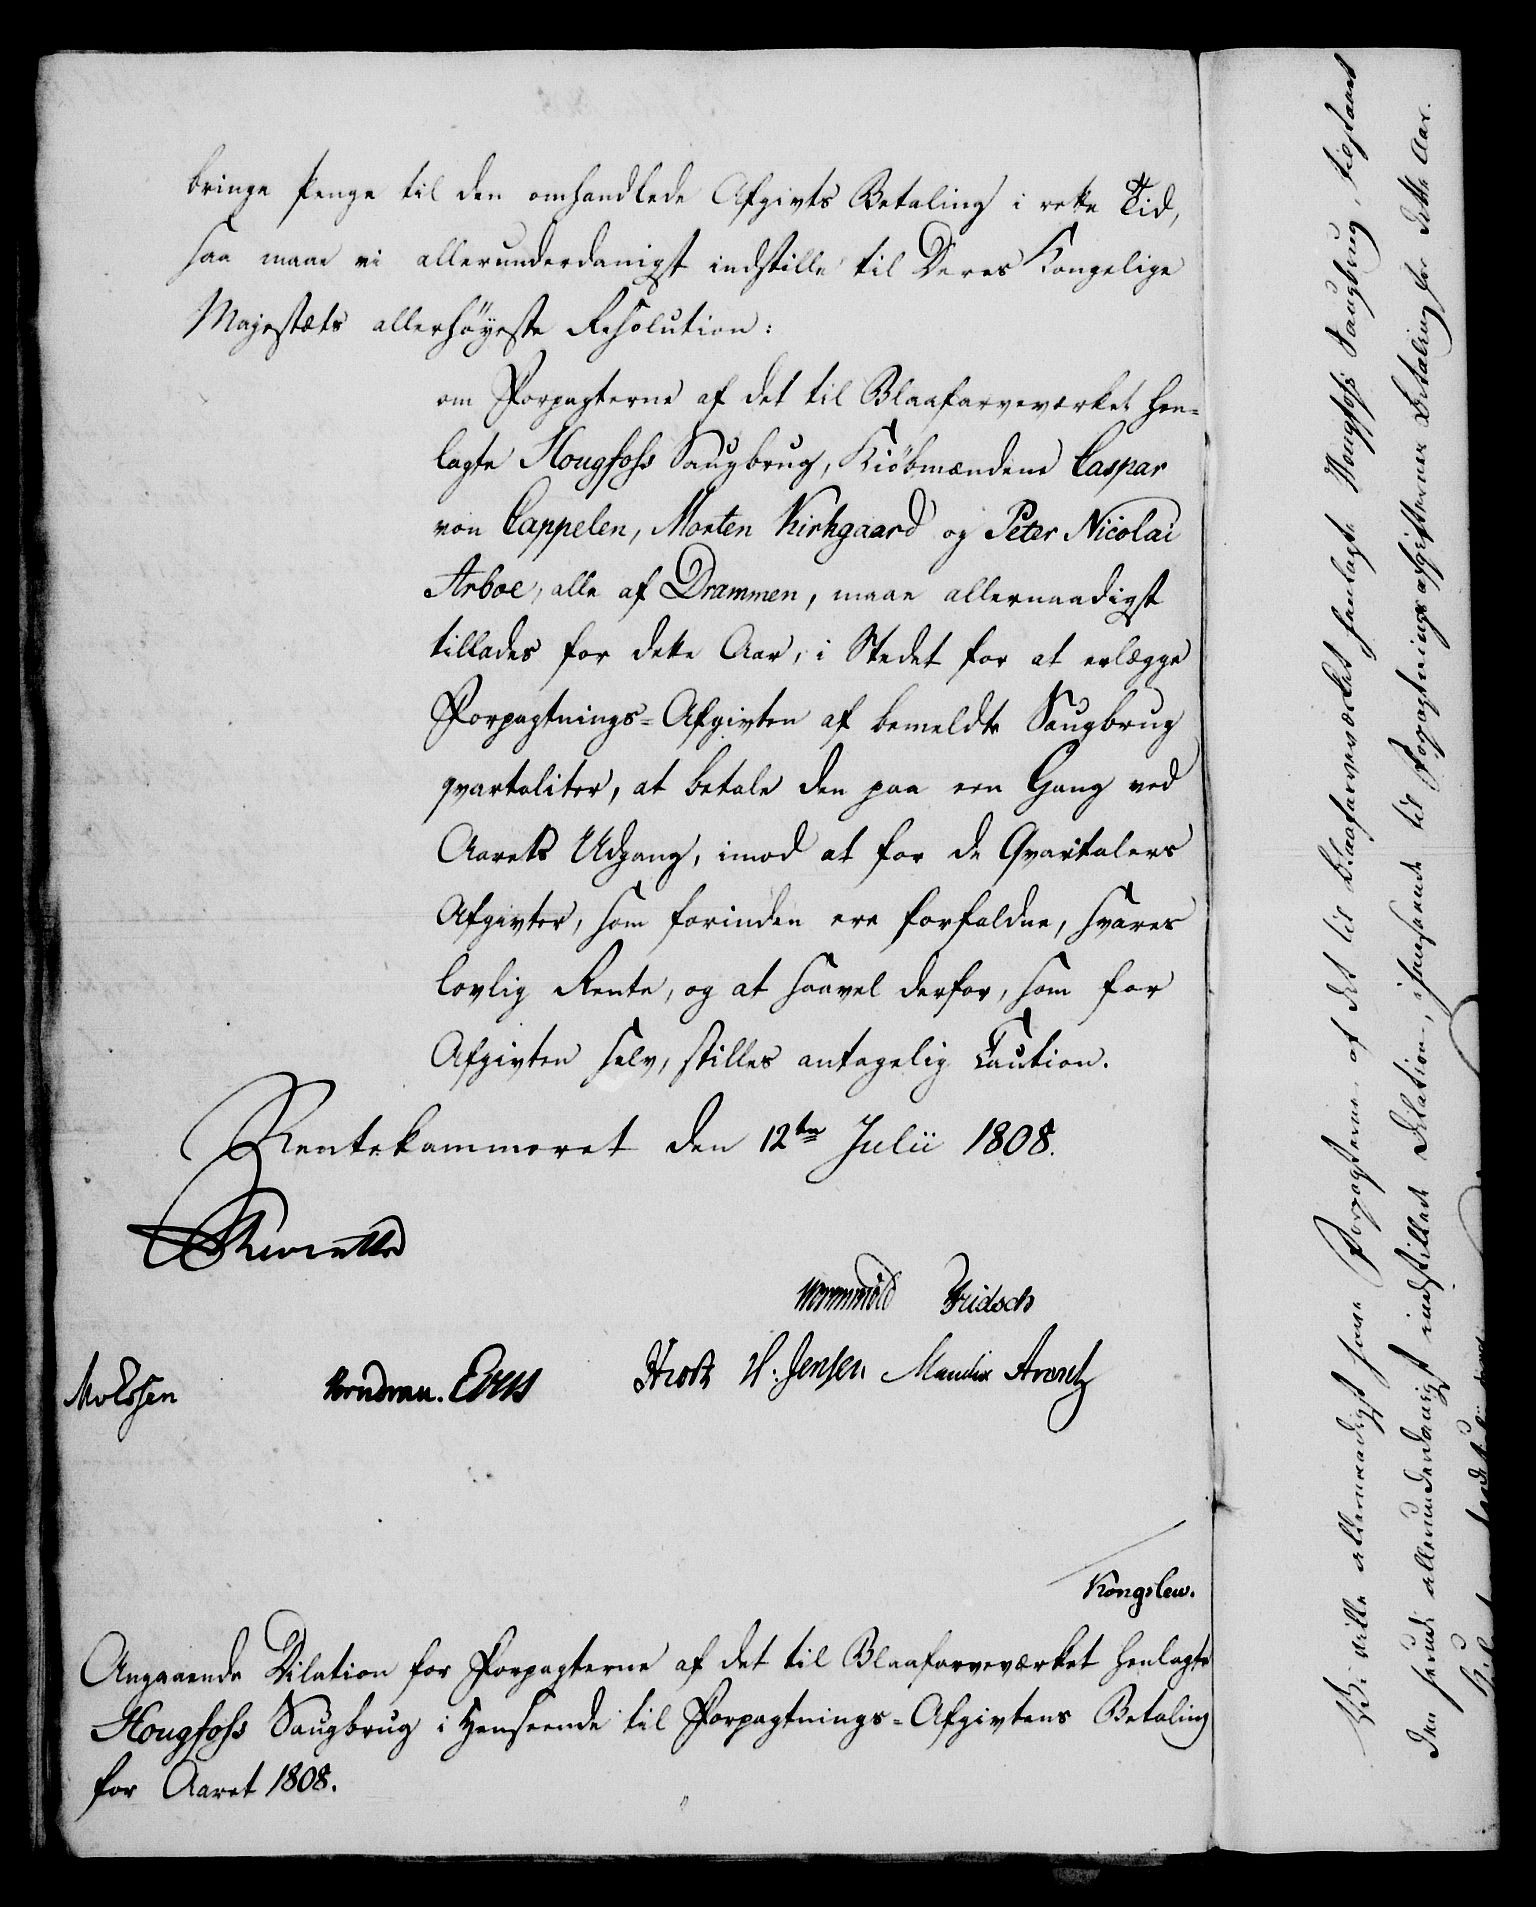 bringe Penge til den omhandlede Afgivts Betaling i rette Tid,
saa maae vi allerunderdanigst indstille til Deres Kongelige
Majestæts allerhöyeste Resolution:
om Forpagterne af det til Blaafarveværket hen=
lagte Hougfoss Saugbrug, Kiöbmændene Caspar
von Cappelen, Morten Kirkgaard og Peter Nicolai
Arboe, alle af Drammen, maae allernaadigst
tillades for dette Aar, i Stedet for at erlægge
Forpagtnings=Afgivten af bemeldte Saugbrug
qvartaliter, at betale den paa een Gang ved
Aarets Udgang, imod at for de Qvartalers
Afgivter, som forinden ere forfaldne, svares
lovlig Rente, og at saavel derfor, som for
Afgivten selv, stilles antagelig Caution.
Rentekammeret den 12te Julii 1808.
Reventlow
Wormskiold Fridsch
Hrosk H. Jensen Manthe Arentz
Kongslew.
Angaaende Dilation for Forpagterne af det til Blaafarveværket henlagte
Hougfoss Saugbrug i Henseende til Forpagtnings=Afgivtens Betaling
for Aaret 1808.
Vi ville allernaadigst have Forpagterne af det til Blaafarveværket henlagte Hougfoss Saugbrug, tilstaaet
den herved allerunderdanigst indstillede Dilation, i henseende til Forpagtningsafgifternes Betaling for dette Aar.